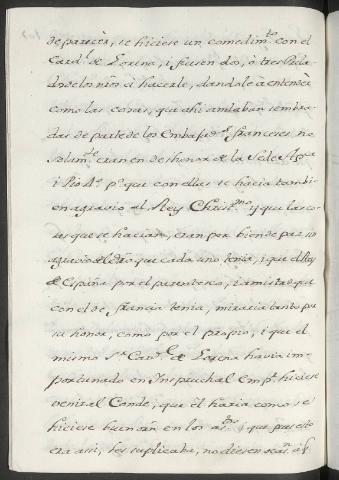 de parecèr, se hiciese un comedim.to con el
Card.l de Lorena, i fuesen dos, ò tres Prela
dos de los nros à hacerle, dandole à entendèr
como las cosas, que ahi andaban sembra-
das de parte de los Embaxad.s franceses no
solam.te eran en deshonor de la Sede App.ca
i Pio 4.o p.o que con ellas se hacia tambi-
en agravio al Rey Christ.mo y que las co-
sas que se hacian, eran por bien de paz sin
agravio del dro que cada uno tenia, i que el Rey
de España por el parentesco, i amistad que
con el de francia tenia, miraria tanto por
su honor, como por el proprio, i que el
mismo S.r Card.l de Lorena havia im-
portunado en Inspruch al Emp.r hiciese
venir al Conde, que èl haria como se
hiciese buen orn en los as.tos i que pues esto
era asi, les suplicaba, no diesen ocas.n à